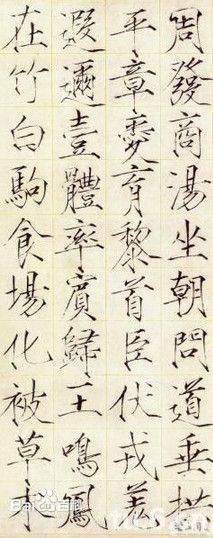 周發商湯坐朝問道垂拱
平章愛育黎首臣伏戎羌
遐邇壹體率賓歸王鳴鳳
在竹白駒食場化被草木
Bai百科